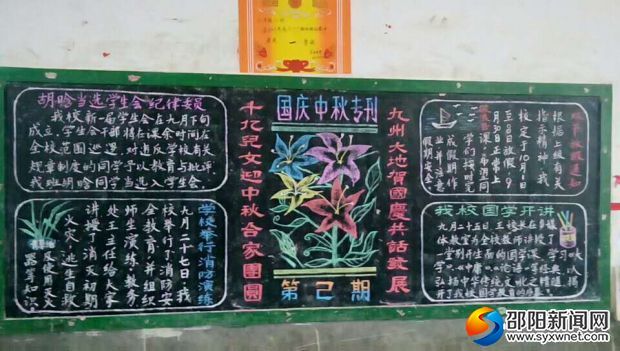 胡晗当选学生会纪律委员
我校新一届学生会在九月下旬
成立,学生会干部将在课余时间在
全校范围巡逻,对违反学校有关
规章制度的同学予以教育与批评
我班胡晗同学当选入学生会.
学校举行消防演练
九月二十七日,我
校举行了消防安
全教育,并组织
师生演练,教务
处王主任给大家
讲授了消灭初期
火灾,逃生自救
及使用灭火
器等知识.
国庆中秋专刊
十亿兒女迎中秋合家團圓
九州大地賀國慶共話發展
第2期
双节放假通知
根据上级有关
指示精神,我
校定于10月1日
至8日放假,9
月30日正常上
课,希望同
学们按时完
成假期作
业并注意
假期安全
我校国学开讲
九月二十五日,王校长在多媒
体教室为全校教师讲授了
一堂别开生面的国学课,学习大
学",《中庸》《论语》等经典
弘扬中华传统文化之精髓
开了我校国学教育的序幕.
一等奖
邵阳新闻网
www.syxwnet.com